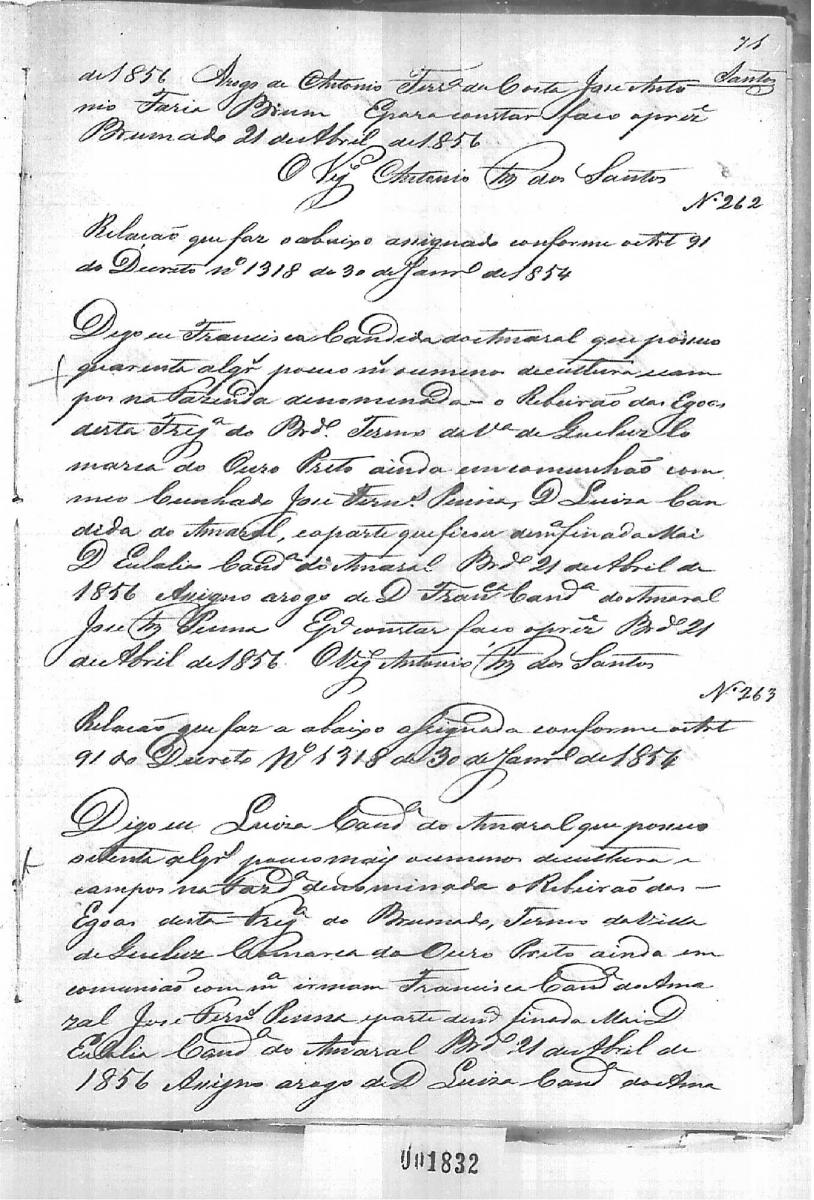 71
Santos
de 1856 Arogo de Antonio Ferrª da Costa Jose Anto
nio Faria Brum Epara constar faco o prez.
Brumado 21 de Abril de 1856
O Vigº Antonio M dos Santos
Nº 262
Relacão que faz o abaixo assignado conforme o Art 91
do Decreto nº 1318 de 30 de Janrº de 1854
Digo eu Francisca Candida do Amaral que possuo
quarenta alqrˢ pouco mˢ ou menos de cultura e cam
pos na Fazenda denominada - o Ribeirão das Egoas
desta Fregª do Brdº. Termo da Vª de Queluz Co
marca do Ouro Preto ainda em comunhão com
meo Cunhado Jose Fernˢ. Penna, D Luiza Can
dida do Amaral, e a parte que ficou de mª finada Mai
D Eulalia Candª do Amaral Brdº 21 de Abril de
1856 Assigno arogo de D Francª Candª do Amaral
Jose M Penna Epª constar faco o prez. Brdº 21
de Abril de 1856 O Vigº Antonio M dos Santos
Nº 263
Relacão que faz a abaixo assignada conforme o Art
91 do Decreto Nº 1318 de 30 de Janrº de 1854
Digo eu Luiza Candª do Amaral que possuo
setenta alqrˢ pouco mais ou menos de cultura e
campos na Fazdª denominada o Ribeirão das -
Egoas desta Fregª do Brumado, Termo da Villa
de Queluz Comarca do Ouro Preto ainda em
comunião com mª irmam Francisca Candª do Ama
ral Jose Fernˢ Penna e parte de mª finada Mai D
Eulalia Candª do Amaral Brdº 21 de Abril de
1856 Assigno arogo de D Luiza Candª do Ama
001832